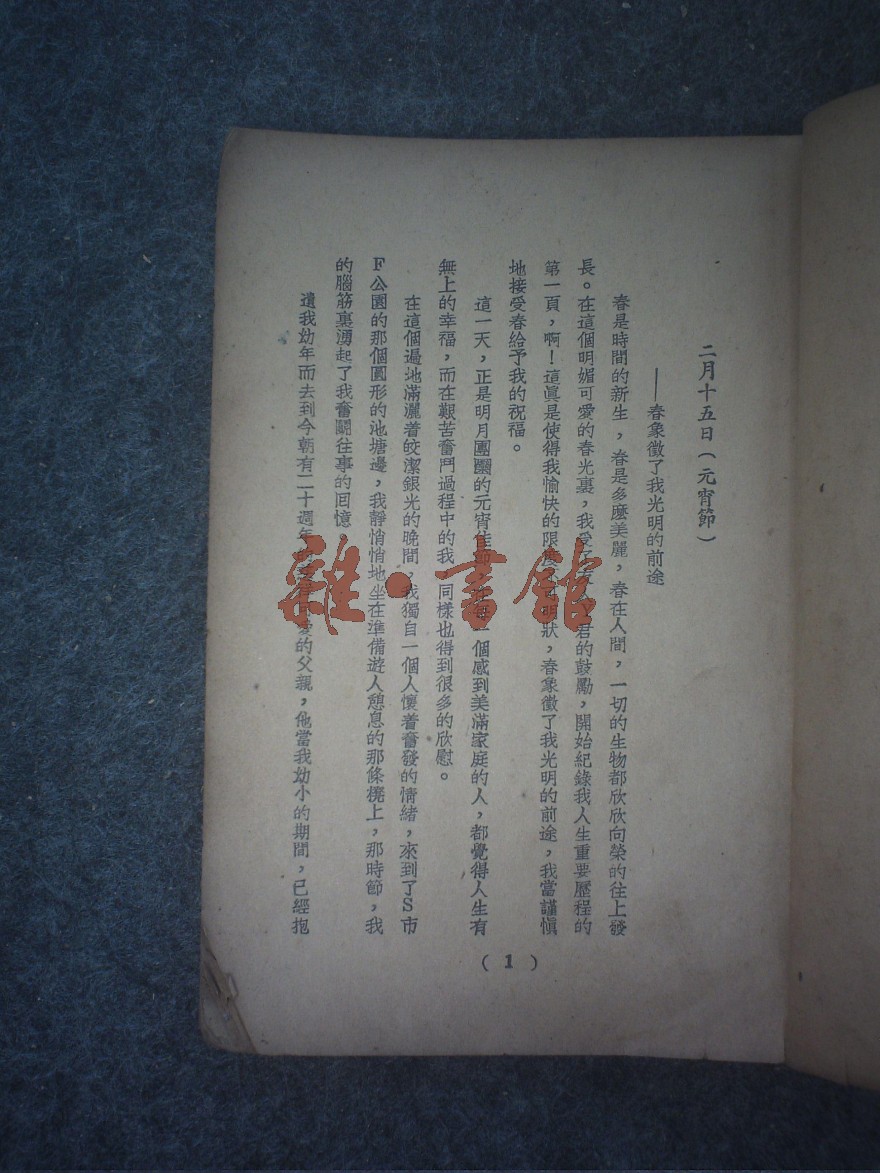 二月十五日(元宵節)
——春象徵了我光明的前途
春是時間的新生,春是多麽美麗,春在人間,一切的生物都欣欣向榮的往上發
長。在這個明媚可愛的春光裏,我受了 君的鼓勵,開始紀錄我人生重要歷程的
第一頁,啊!這眞是使得我愉快的限度 明狀,春象徵了我光明的前途,我當謹愼
地接受春給予我的祝福。
這一天,正是明月團圞的元宵佳節, 個感到美滿家庭的人,都覺得人生有
無上的幸福,而在艱苦奮鬥過程中的我,同樣也得到很多的欣慰。
在這個遍地滿灑着皎潔銀光的晚間,我獨自一個人懷着奮發的情緒,來到了S市
F公園的那個圓形的池塘邊,我靜悄悄地坐在準備遊人憩息的那條櫈上,那時節,我
的腦筋裏湧起了我奮鬭往事的回憶
遺我幼年而去到今朝有二十週年 愛的父親,他當我幼小的期間,已經抱
(1)
雜·書館